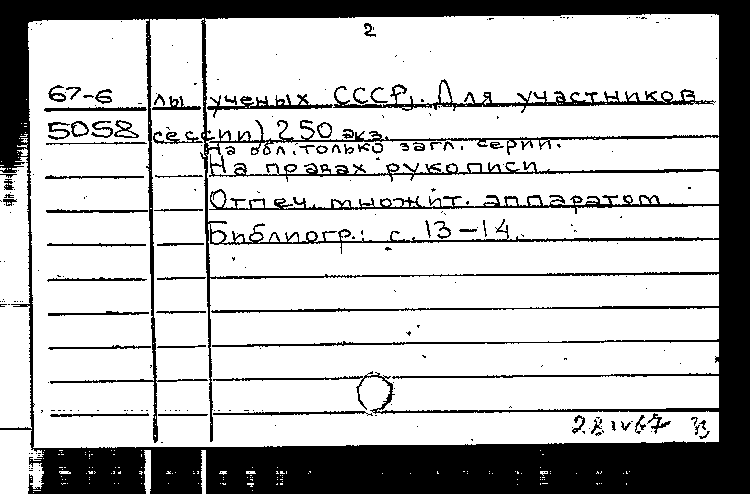 2
67-6 лы ученых СССР). Для участников
5058 сессии) 250 экз.
На обл. только загл. серии.
На правах рукописи.
Отпеч. множит. аппаратом
Библиогр.: с. 13-14.
28 IV 67